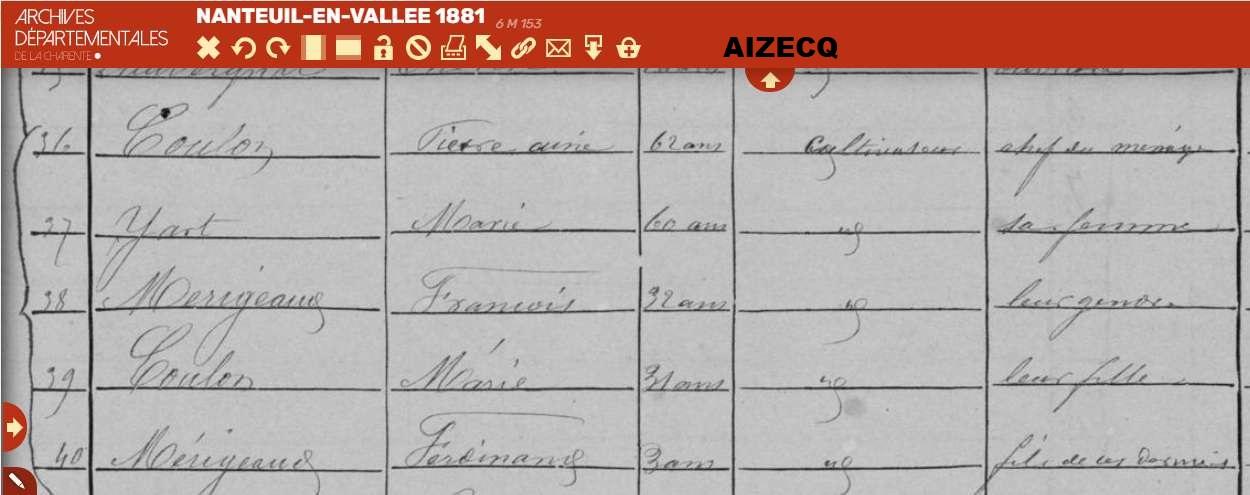 ARCHIVES
DÉPARTEMENTALES
DE LA CHARENTE
NANTEUIL-EN-VALLEE 1881 6 M 153
AIZECQ
36 Coulon Pierre ainé 62 ans Cultivateur chef du ménage
37 Yart Marie 60 ans id sa femme
38 Merigeaud Francois 32 ans id leur gendre
39 Coulon Marie 31 ans id leur fille
40 Mérigeaud Ferdinand 3 ans id fils de ces derniers